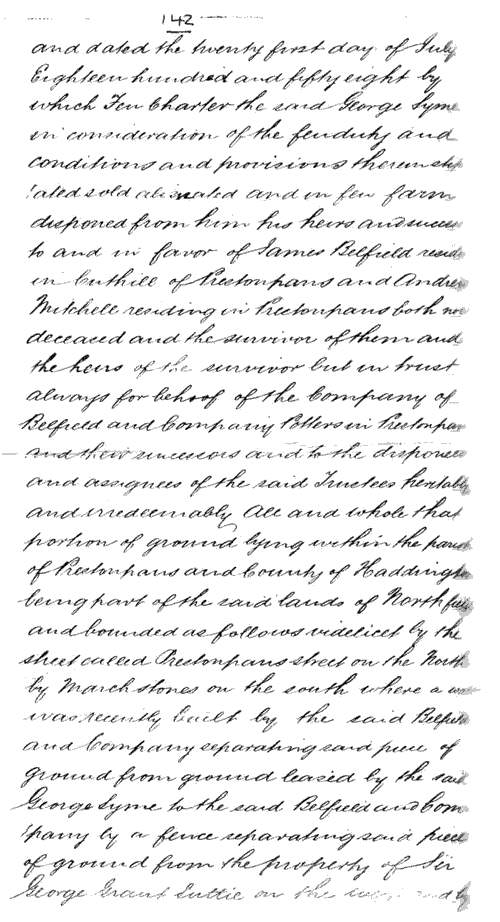 142
and dated the twenty first day of July
Eighteen hundred and fifty eight by
which Feu Charter the said George Syme
in consideration of the feuduty and
conditions and provisions therein stip
ulated sold alienated and in feu farm
disponed from him his heirs and succes
to and in favor of James Belfield resid
in Cuthill of Prestonpans and Andrew
Mitchell residing in Prestonpans both now
deceased and the survivor of them and
the heirs of the survivor but in trust
always for behoof of the Company of
Belfield and Company Potters in Prestonpans
and their successors and to the disponees
and assignees of the said Trustees heritably
and irredeemably All and whole that
portion of ground lying within the parish
of Prestonpans and County of Haddington
being part of the said lands of Northfield
and bounded as follows videlicet by the
street called Prestonpans street on the North
by March stones on the south where a
was recently built by the said Belfield
and Company separating said piece of
ground from ground leased by the said
George Syme to the said Belfield and Com
pany by a fence separating said piece
of ground from the property of Sir
George Grant Suttie on the west and by